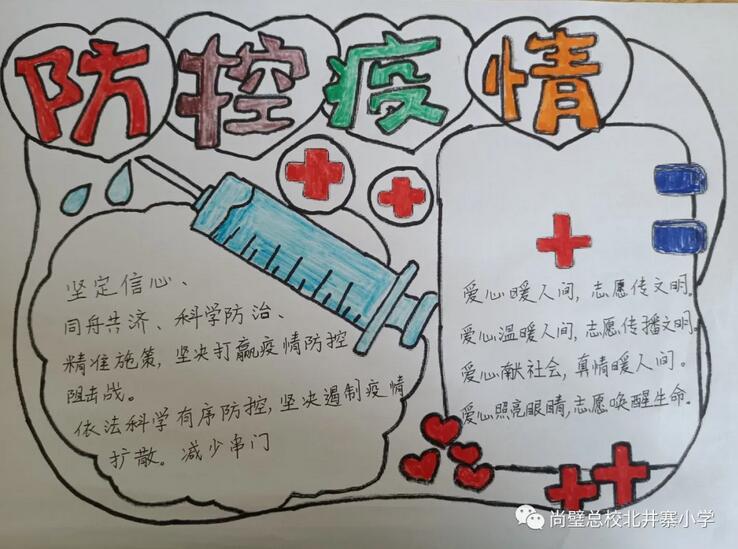 防控疫情
坚定信心、
同舟共济、科学防治、
精准施策,坚决打赢疫情防控
阻击战。
依法科学有序防控,坚决遏制疫情
扩散。减少串门
爱心暖人间,志愿传文明。
爱心温暖人间,志愿传播文明。
爱心献社会,真情暖人间。
爱心照亮眼睛,志愿唤醒生命。
尚璧总校北井寨小学